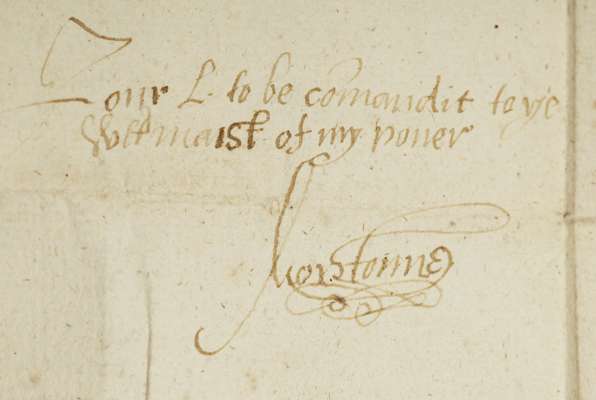 Zour L. to be cōmandit to ye
vttmaist of my power
Mortoune